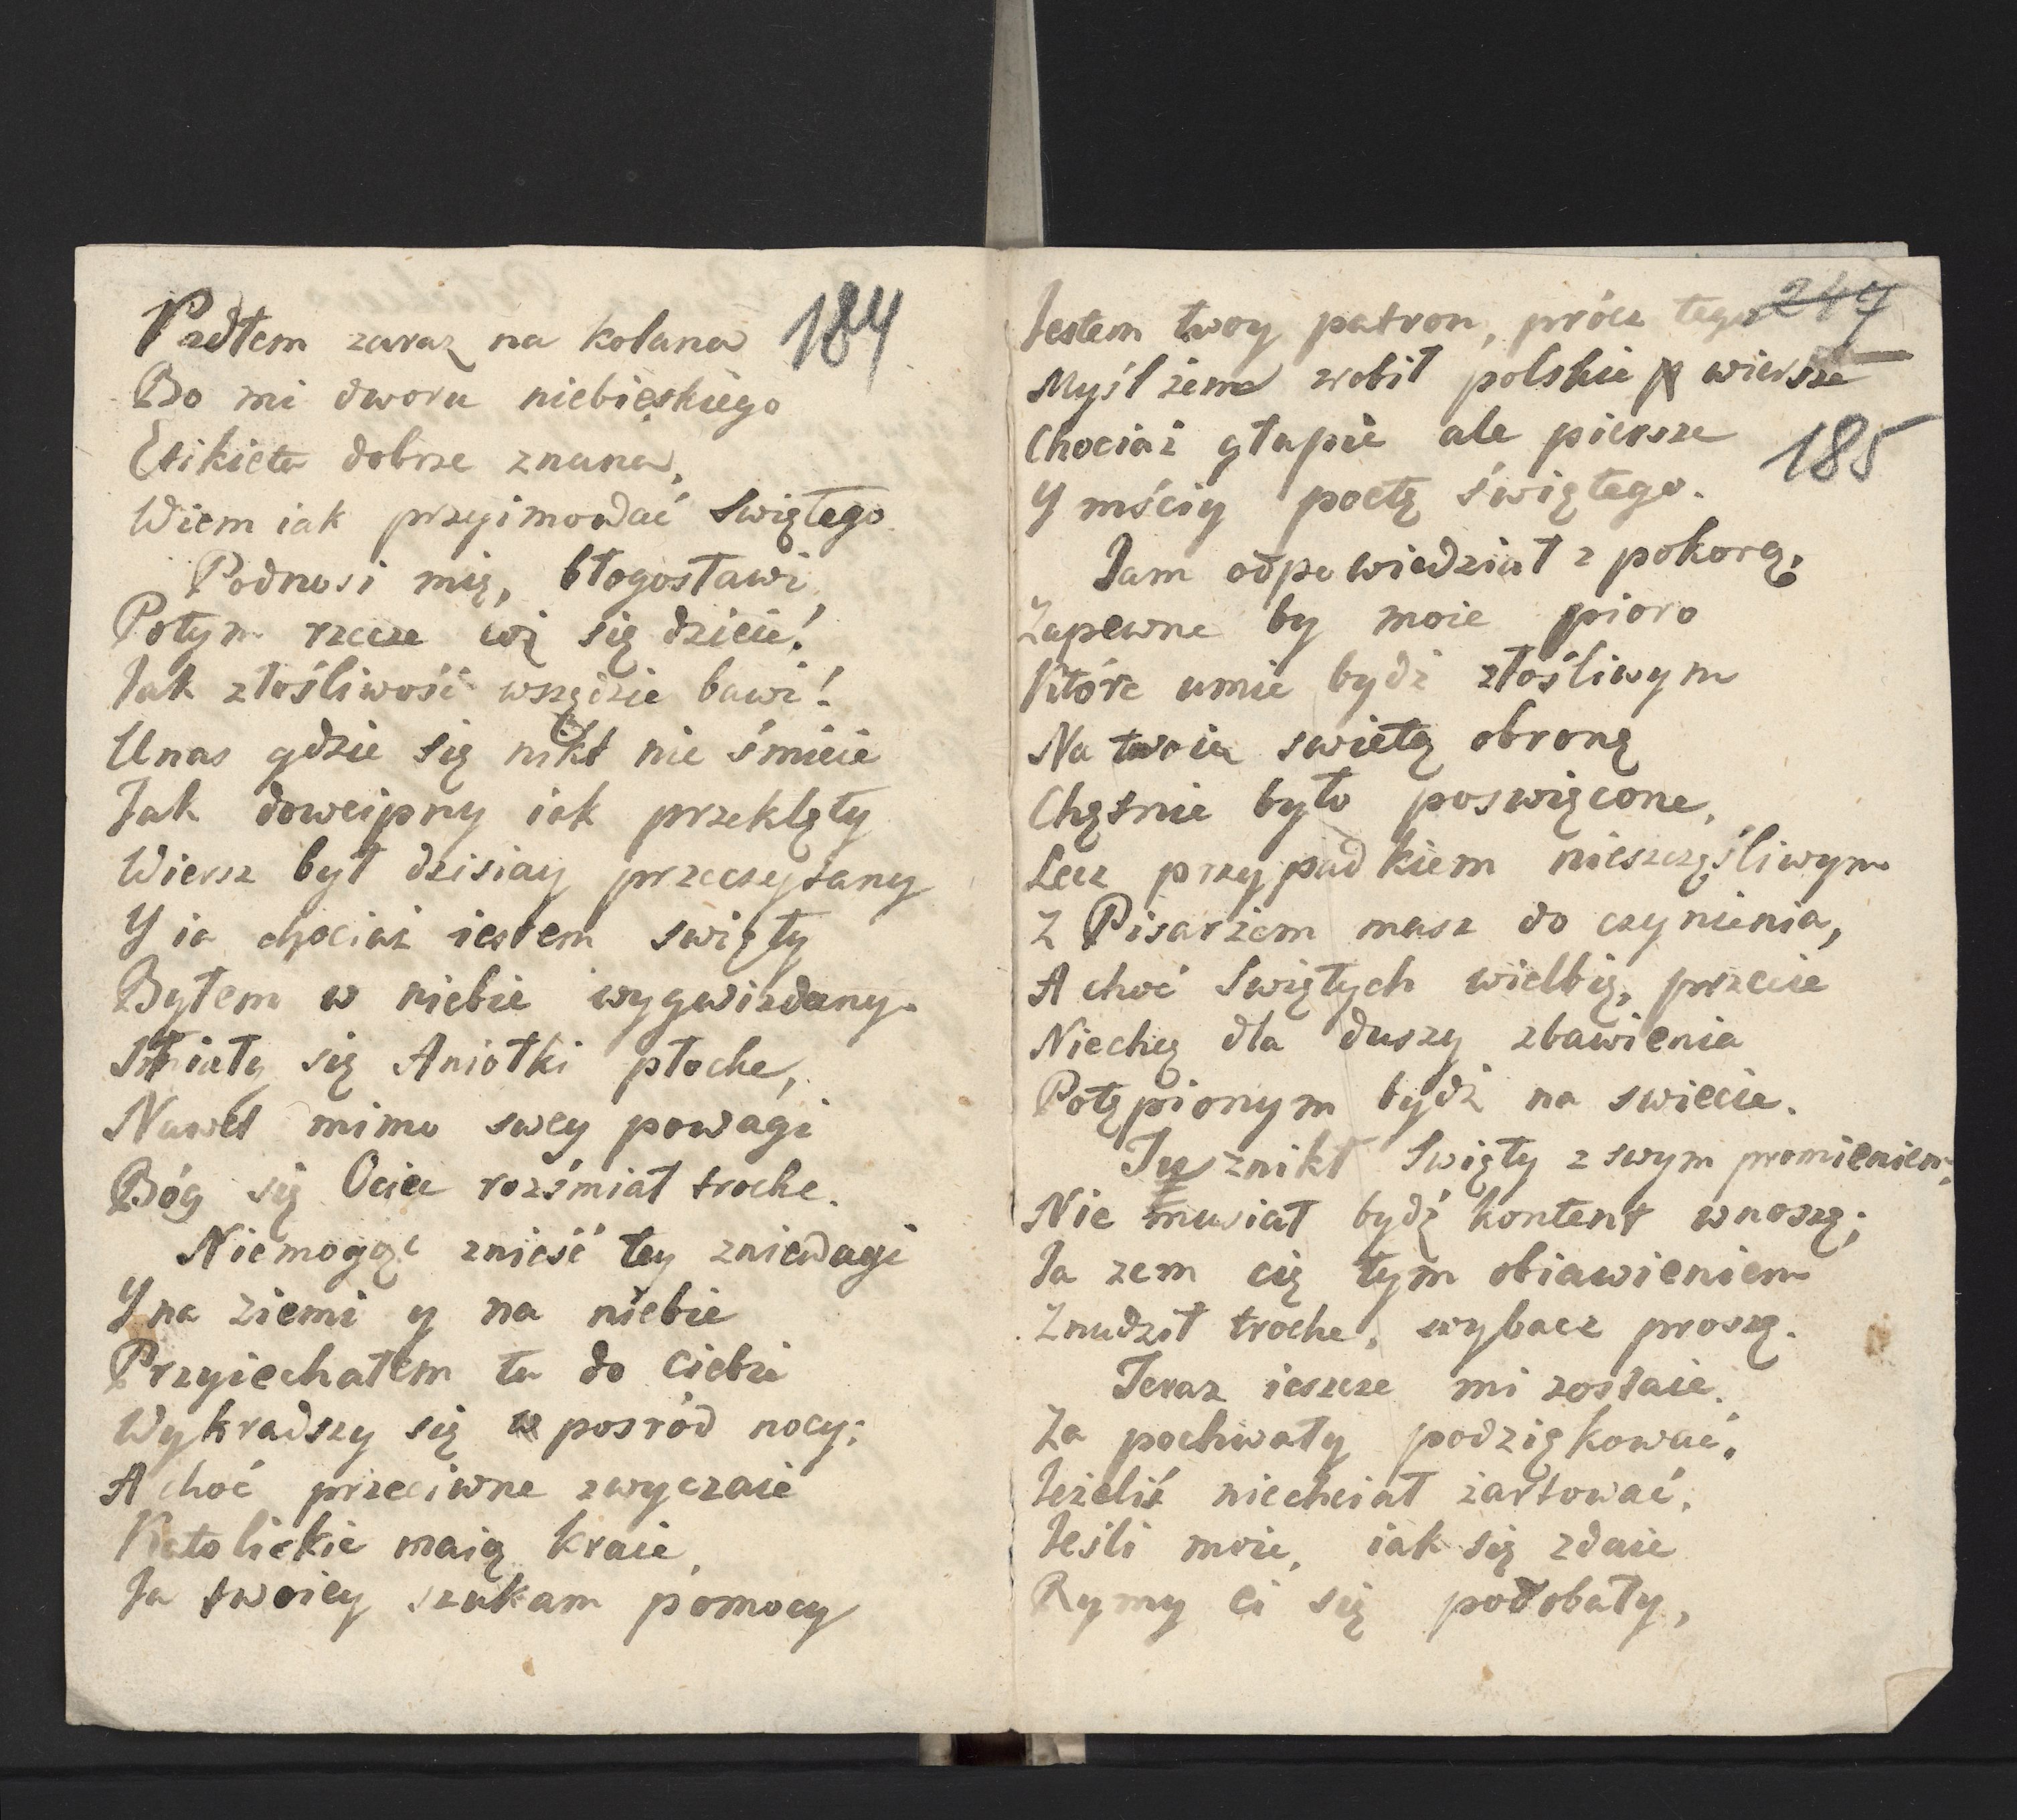 184
Padłem zaraz na kolana
Bo mi dworu niebieskiego
Etikieta dobrze znana,
Wiem iak przyimować Swiętego
Podnosi mię, błogosławi,
Potym rzecze coż się dzieie!
Jak złośliwość wszędzie bawi!
Unas gdzie się nikt nie śmieie
Jak dowcipny iak przeklęty
Wiersz był dzisiay przeczytany
Y ia chociaż iestem swięty
Byłem w niebie wygwizdany.
Smiały się Aniołki płoche,
Nawet mimo swey powagi
Bóg się Ociec rozśmiał troche.
Niemogąc znieść tey zniewagi
Y na ziemi y na niebie
Przyiechałem tu do Ciebie
Wykradszy się w posród nocy;
A choć przeciwne zwyczaie
Katolickie maią kraie,
Ja twoiey szukam pomocy
247
Jestem twoy patron, prócz tego
185
Myśl żem zrobił polskie wiersze
Chociaż głupie ale piersze
Y mściy poetę świętego.
Jam odpowiedział z pokorą,
Zapewne by moie pioro
Które umie bydź złośliwym
Na twoią swiętą obronę
Chętnie było poswięcone,
Lecz przypadkiem nieszczęśliwym
Z Pisarzem masz do czynienia,
A choć Swiętych wielbię, przecie
Niechcę dla duszy zbawienia
Potępionym bydź na swiecie.
Tu znikł Swięty z swym promieniem,
Nie musiał bydź kontent wnoszę;
Ja zem cię tym obiawieniem
Znudził troche, wybacz proszę.
Teraz ieszcze mi zostaie,
Za pochwały podziękować,
Jeżeliś niechciał żartować,
Jeśli moie, iak się zdaie
Rymy ci się podobały,